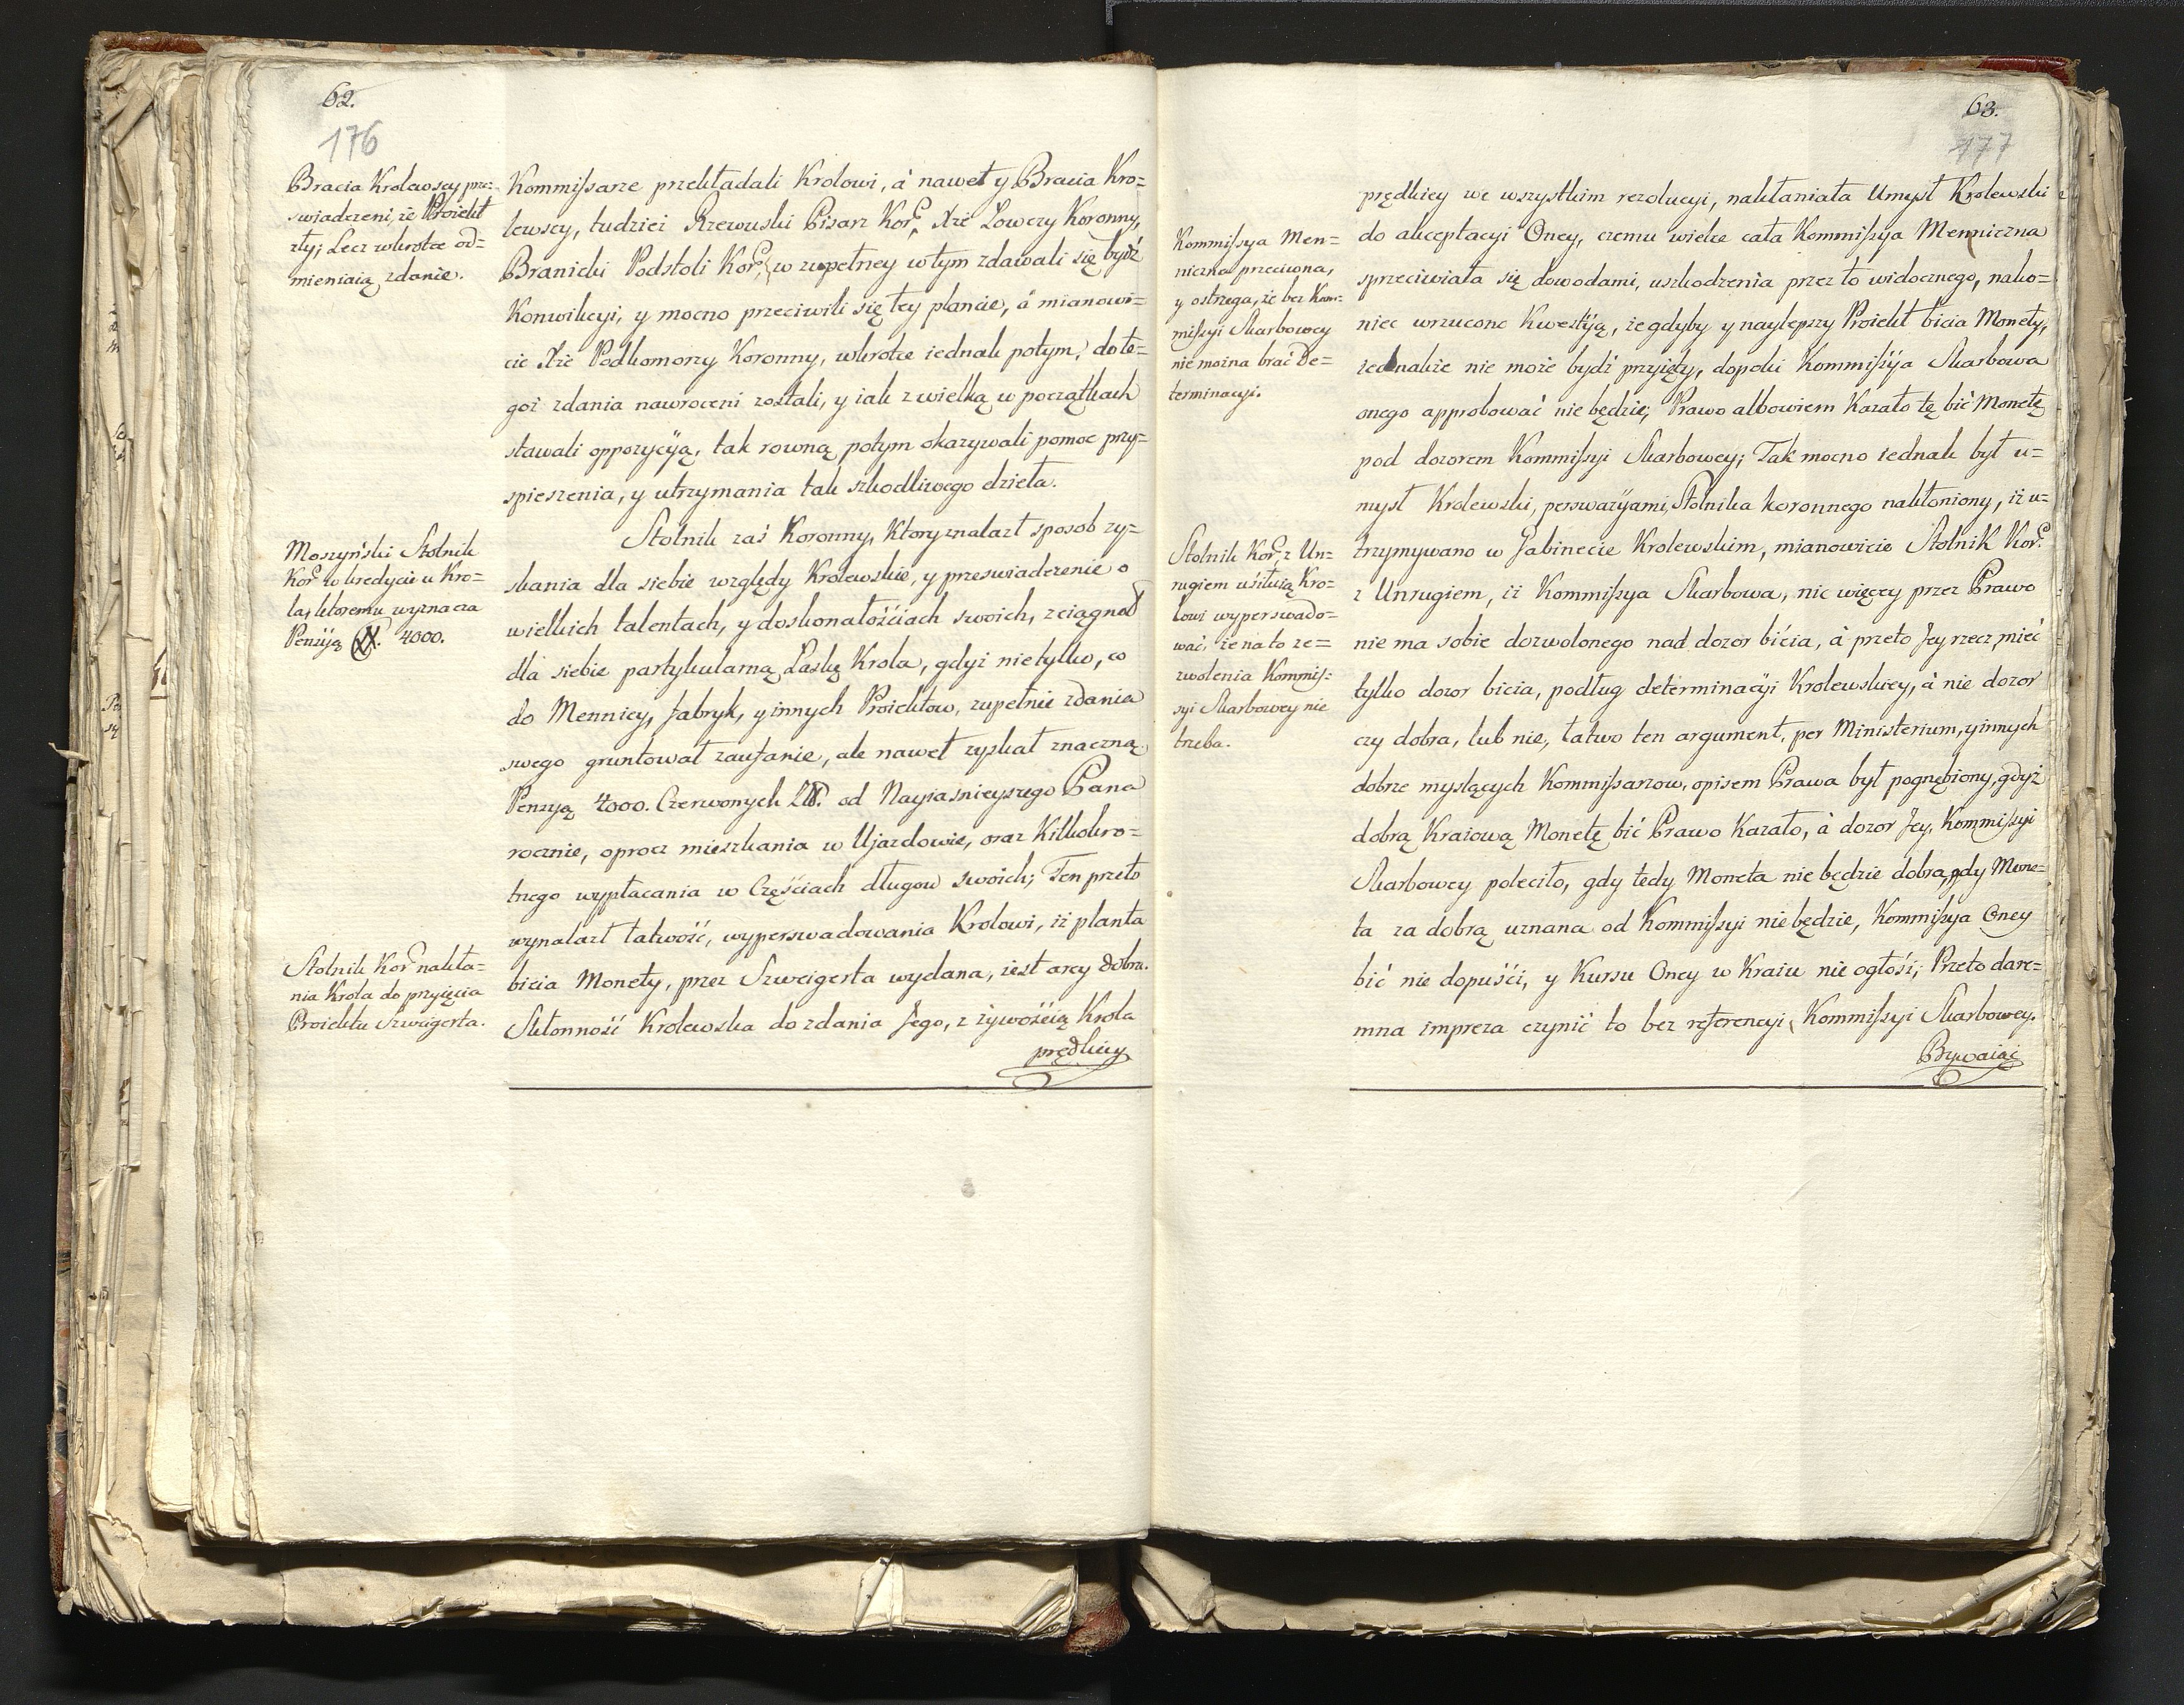 62.
176
Bracia Krolewscy prze=
swiadczeni, że Proiekt
zły; Lecz wkrotce od=
mieniaią zdanie.
Kommißarze przekładali Krolowi, à nawet y Bracia Kro=
lewscy, tudzież Rzewuski Pisarz Kor:, Xże Łowczy Koronny,
Branicki Podstoli Kor: w zupełney w tym zdawali się bydź
Konwikcyi, y mocno przeciwili się tey plancie, à mianowi=
cie Xże Podkomorzy Koronny, wkrotce iednak potym, do te=
goż zdania nawroceni zostali, y iak z wielką w początkach
stawali oppozycyją, tak rowną potym okazywali pomoc przy=
spieszenia, y utrzymania tak szkodliwego dzieła.
Moszyński Stolnik
Kor: w kredycie u Kro=
la, ktoremu wyznacza
Pensyją 4000.
Stolnik zaś Koronny, Ktory znalazł sposob zy=
skania dla siebie względy Krolewskie, y przeswiadczenie o
wielkich talentach, y doskonałościach swoich, zciągnoł
dla siebie partykularną Łaskę Krola, gdyż nie tylko, co
do Mennicy, Fabryk, y innych Proiektow, zupełnie zdania
swego gruntował zaufanie, ale nawet zyskał znaczną
Pensyą 4000. Czerwonych Zł. od Nayiasnieyszego Pana
rocznie, oprocz mieszkania w Ujazdowie, oraz Kilkokro=
tnego wypłacania w Częściach długow swoich; Ten przeto
wynalazł łatwość, wyperswadowania Krolowi, iż planta
Stolnik Kor: nakła=
nia Krola do przyięcia
Proiektu Szweigerta.
bicia Monety, przez Szweigerta wydana, iest arcy dobra.
Skłonność Krolewska do zdania Jego, z żywością Krola
prędkiey
63.
177
prędkiey we wszystkim rezolucyi, nakłaniała Umysł Krolewski
Kommißya Men=
niczna przeciwna,
y ostrzega, że bez Kom=
mißyi Skarbowey
nie można brać De=
terminacyi.
do akceptacyi Oney, czemu wielce cała Kommißya Menniczna
sprzeciwiała się dowodami, uszkodzenia przez to widocznego, nako=
niec wrzucono Kwestyją, że gdyby y naylepszy Proiekt bicia Monety,
iednakże nie może bydź przyięty, dopoki Kommißyja Skarbowa
onego approbować nie będzie; Prawo albowiem Kazało tę bić Monetę
pod dozorem Kommißyi Skarbowey; Tak mocno iednak był u=
mysł Krolewski, perswazyjami Stolnika koronnego nakłoniony, iż u=
Stolnik Kor: z Un=
rugiem usiłuią Kro=
lowi wyperswado=
wać, że na to ze=
zwolenia Kommiß=
syi Skarbowey nie
trzeba.
trzymywano w Gabinecie Krolewskim, mianowicie Stolnik Kor:
z Unrugiem, iż Kommißya Skarbowa, nic więcey przez Prawo
nie ma sobie dozwolonego nad dozor bicia, à przeto Jey rzecz, mieć
tylko dozor bicia, podług determinacyi Krolewskiey, à nie dozor
czy dobra, lub nie, łatwo ten argument, per Ministerium, y innych
dobrze myslących Kommißarzow, opisem Prawa był pognębiony, gdyż
dobrą Kraiową Monetę bić Prawo Kazało, à dozor Jey, Kommißyi
Skarbowey poleciło, gdy tedy Moneta nie będzie dobra, gdy Mone=
ta za dobrą uznana od Kommißyi nie będzie, Kommißya Oney
bić nie dopuści, y Kursu Oney w Kraiu nie ogłosi; Przeto dare=
mna impreza czynić to bez referencyi Kommißyi Skarbowey.
Bywaiąc